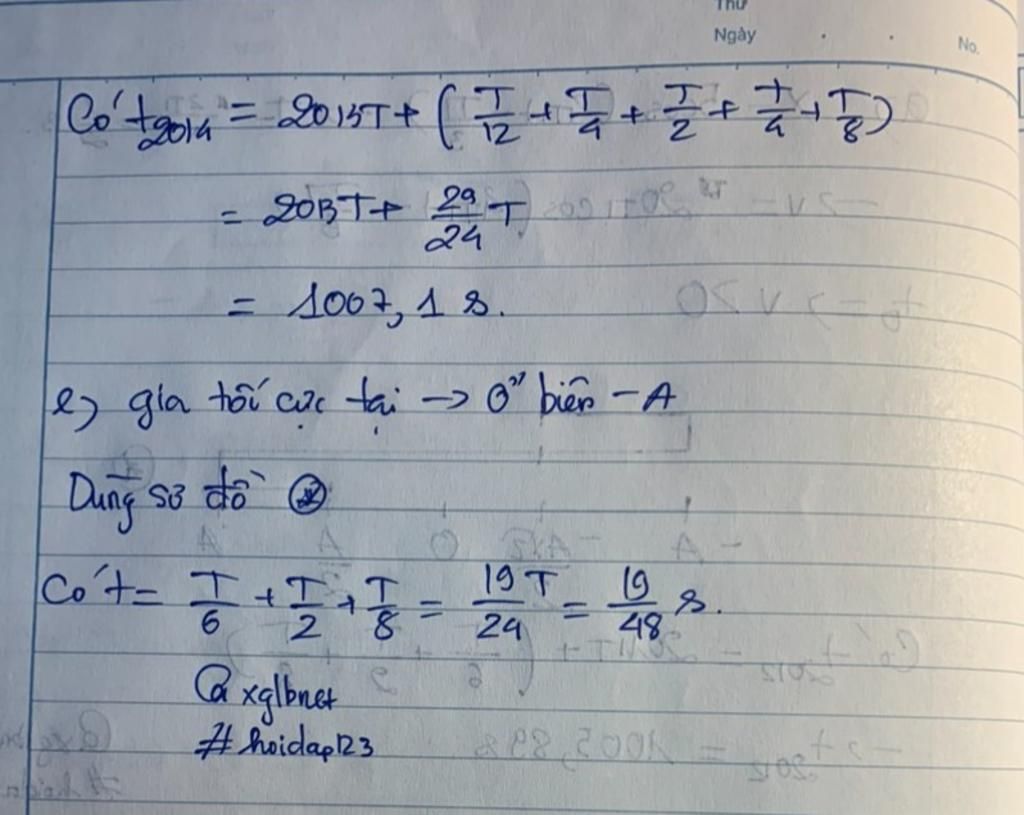 Thứ
Ngày . . No.
Có t₂₀₁₄ = 2013T + (T/12 + T/4 + T/2 + T/4 + T/8)
= 2013T + 29/24 T
= 1007,1 s.
e) gia tốc cực tại → Ở biên -A
Dùng sơ đồ ②
Có t = T/6 + T/2 + T/8 = 19T/24 = 19/48 s.
@ xglbnet
# hoidap123